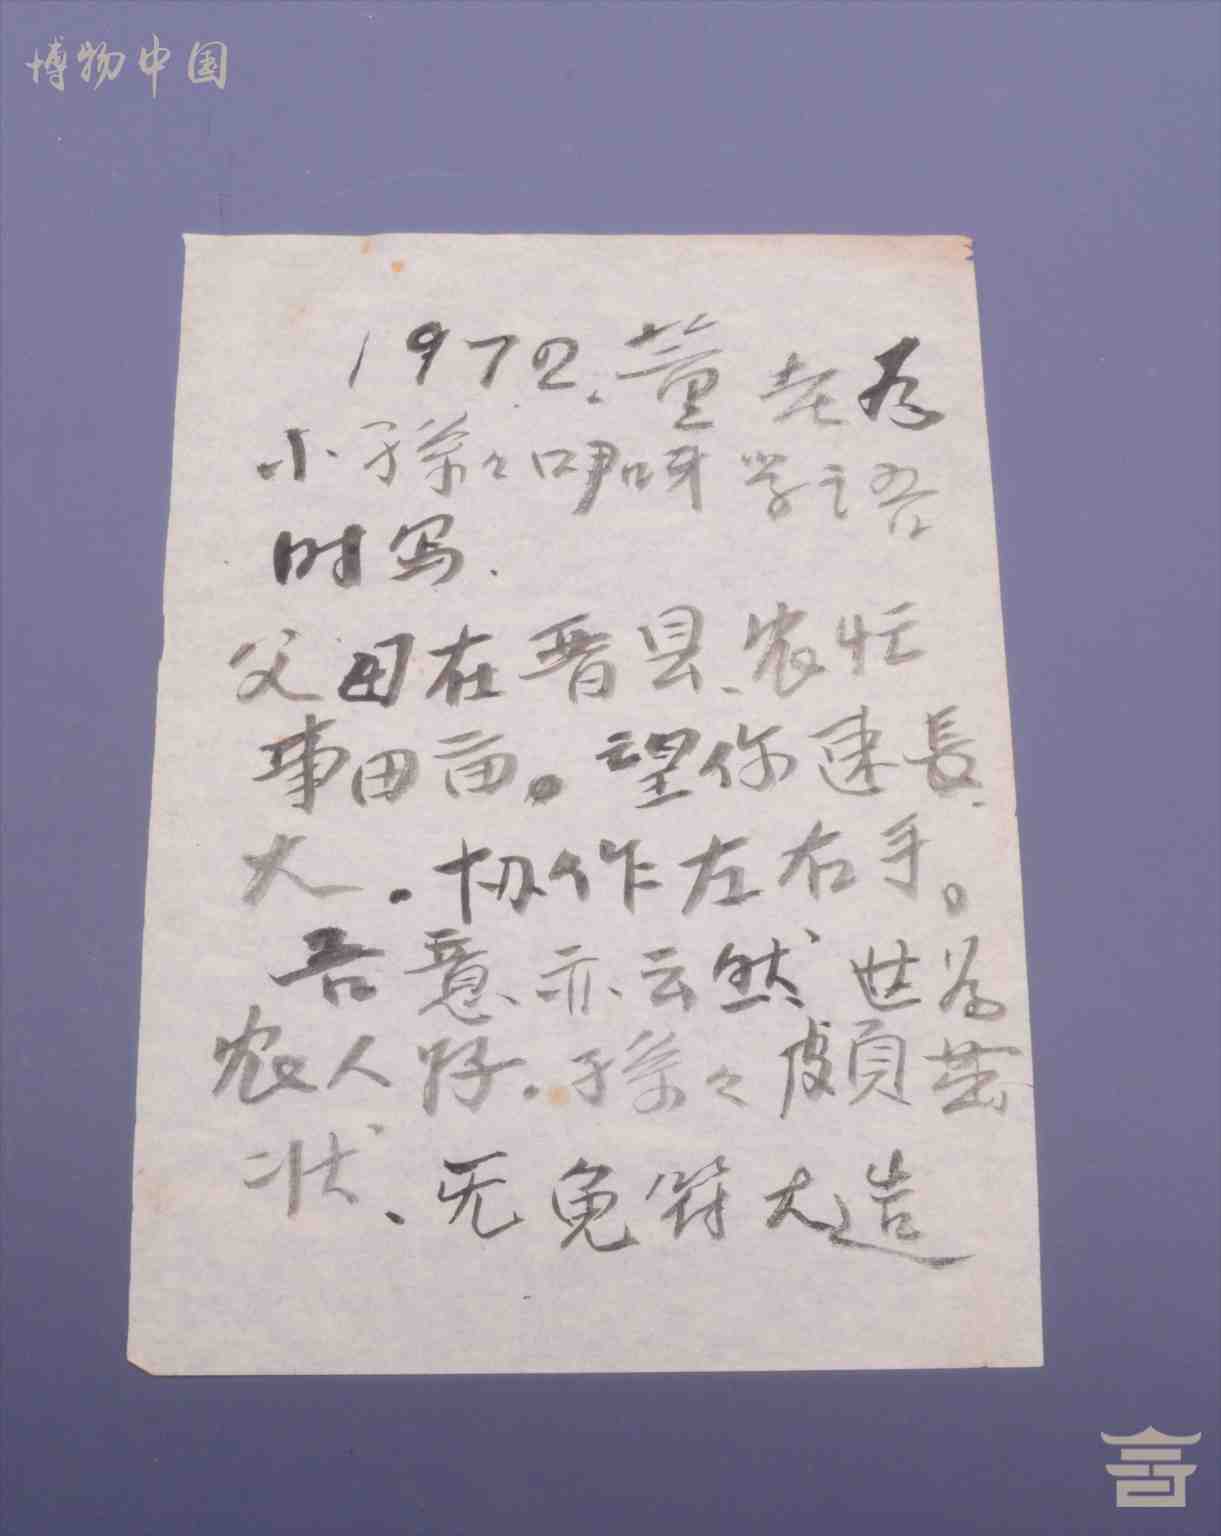 博物中国
1972.董老为
小孙孙咿呀学语
时写.
父母在晋县、农忙
事田亩。望你速長
大.协作左右手。
吾意亦云然世为
农人好.孙孙颇茁
壮、无免符大造